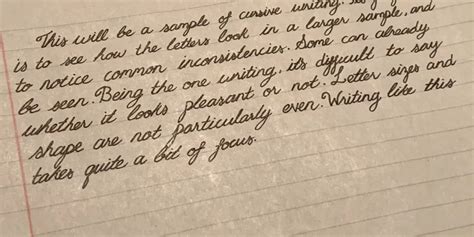 This will be a sample of cursive writing.
is to see how the letters look in a larger sample, and
to notice common inconsistencies. Some can already
be seen. Being the one writing, it's difficult to say
whether it looks pleasant or not. Letter sizes and
shape are not particularly even. Writing like this
takes quite a bit of focus.